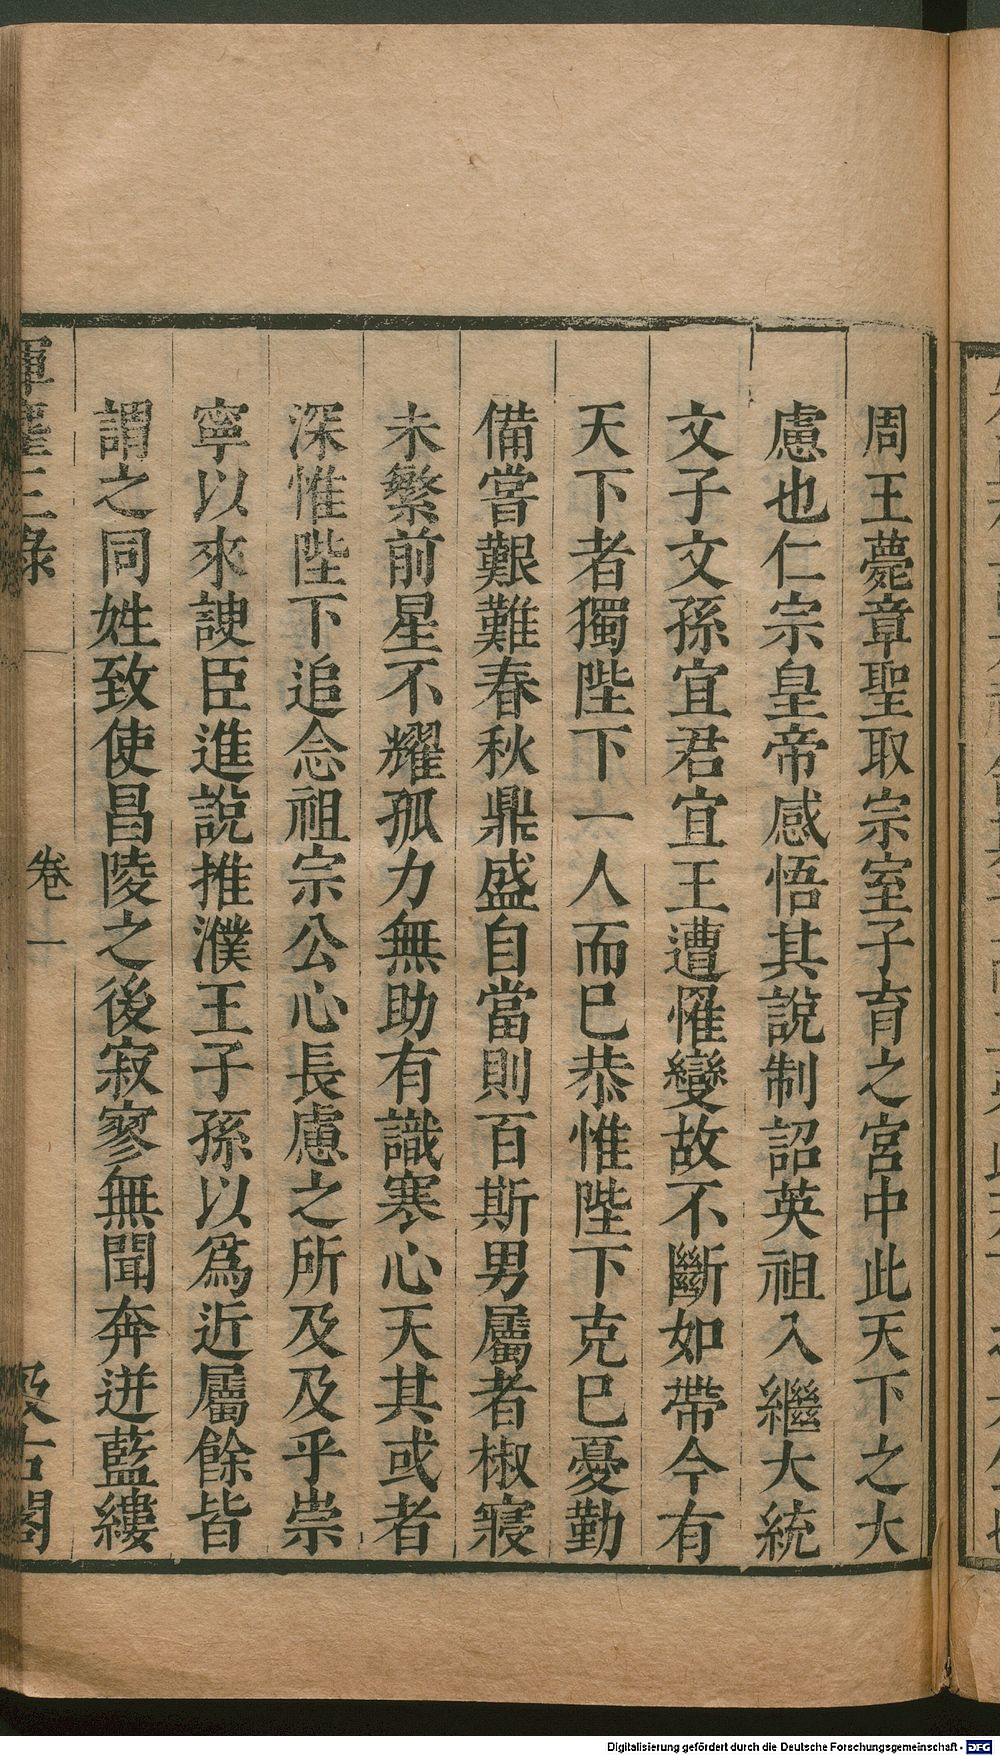 周王薨章聖取宗室子育之宮中此天下之大
慮也仁宗皇帝感悟其說制詔英祖入繼大統
文子文孫宜君宜王遭罹變故不斷如帶今有
天下者獨陛下一人而巳恭惟陛下克巳憂勤
備嘗艱難春秋鼎盛自當則百斯男屬者椒寢
未繁前星不耀孤力無助有識寒心天其或者
深惟陛下追念祖宗公心長慮之所及及乎崇
寧以來諛臣進說推濮王子孫以爲近屬餘皆
謂之同姓致使昌陵之後寂寥無聞奔迸藍縷
揮麈三錄
卷一
汲古閣
Digitalisierung gefördert durch die Deutsche Forschungsgemeinschaft - DFG